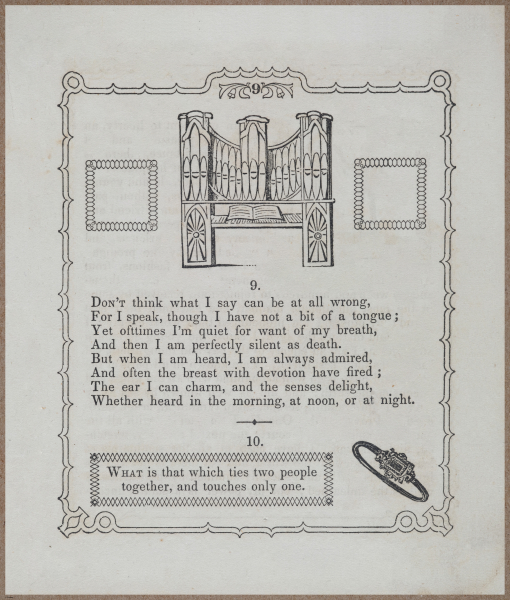 9
9.
DON'T think what I say can be at all wrong,
For I speak, though I have not a bit of a tongue;
Yet ofttimes I'm quiet for want of my breath,
And then I am perfectly silent as death.
But when I am heard, I am always admired,
And often the breast with devotion have fired;
The ear I can charm, and the senses delight,
Whether heard in the morning, at noon, or at night.
10.
WHAT is that which ties two people
together, and touches only one.